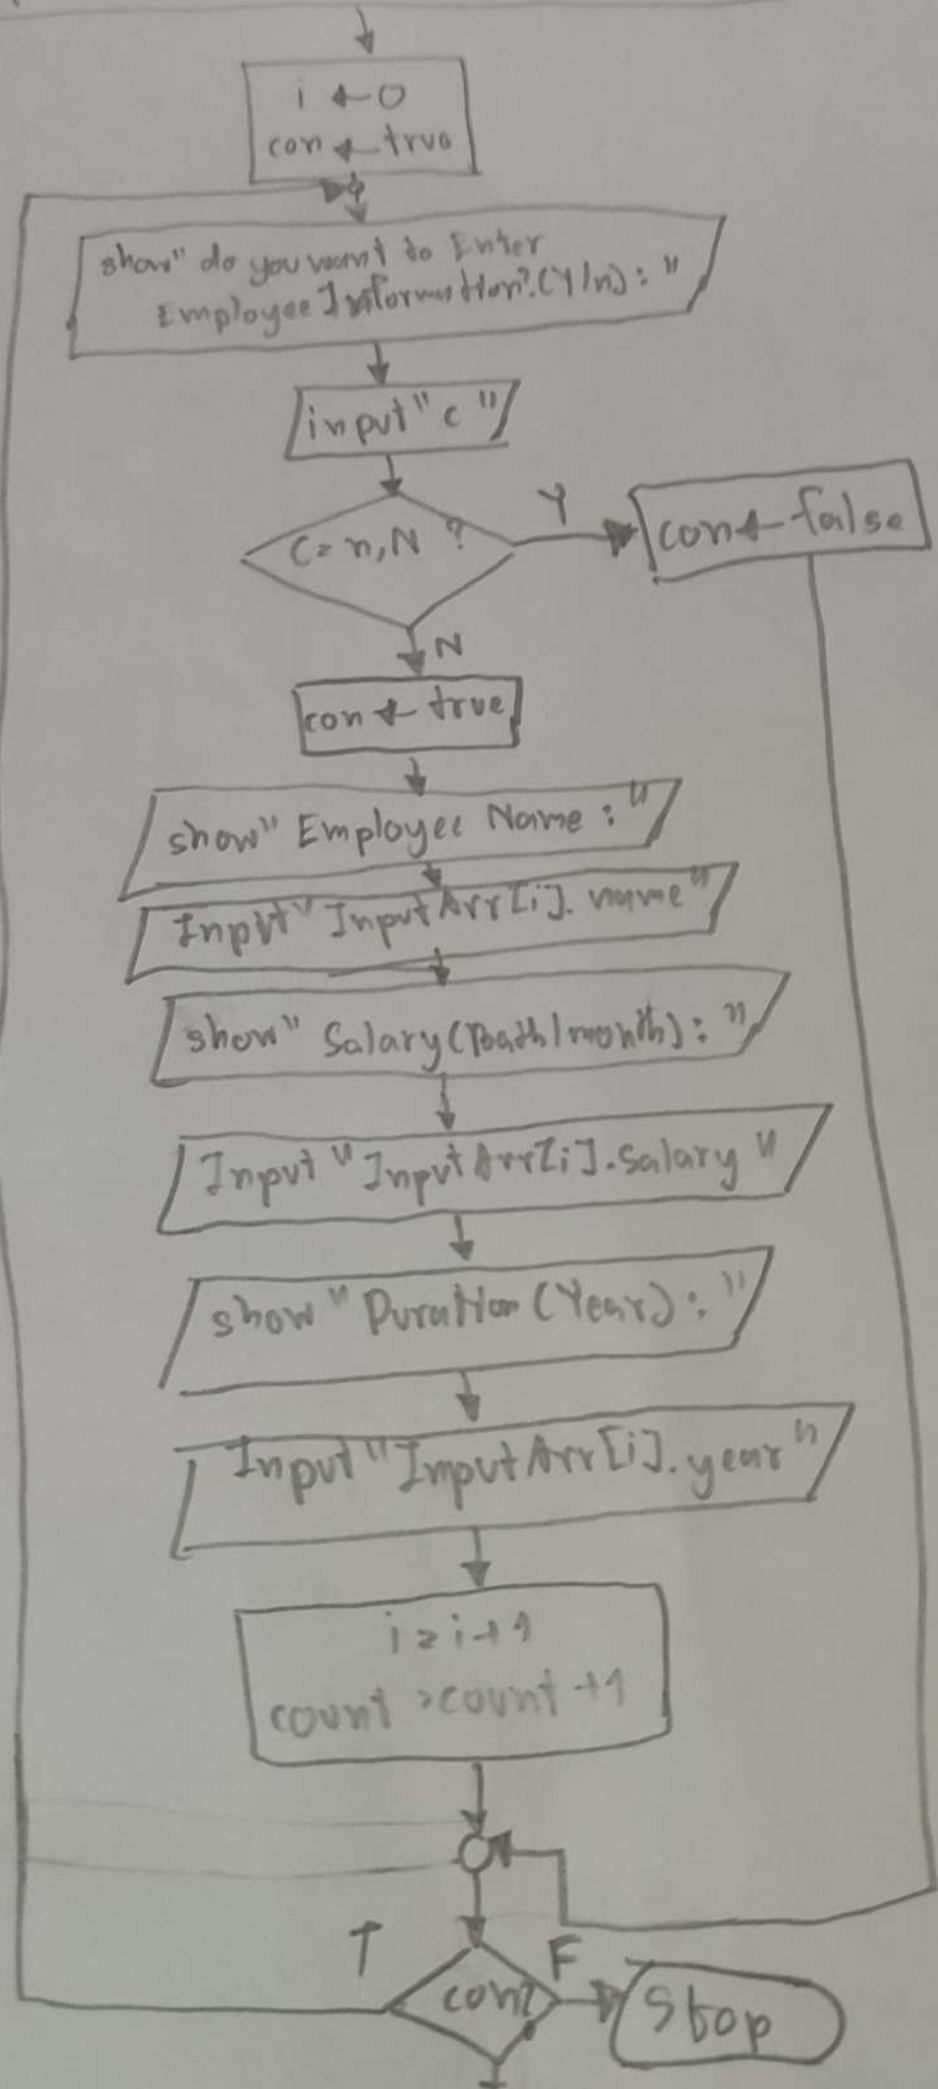 i ← 0
con ← true
show" do you want to Enter
Employee Information?(Y/n): "
input" c "
C= n,N ?
Y
con ← false
N
con ← true
show" Employee Name : "
Input" InputArr[i]. name"
show" Salary(Bath/month): "
Input "InputArr[i].salary "
show "Duration (Year): "
Input "InputArr[i].year"
i = i+1
count =count +1
T
F
con?
Stop